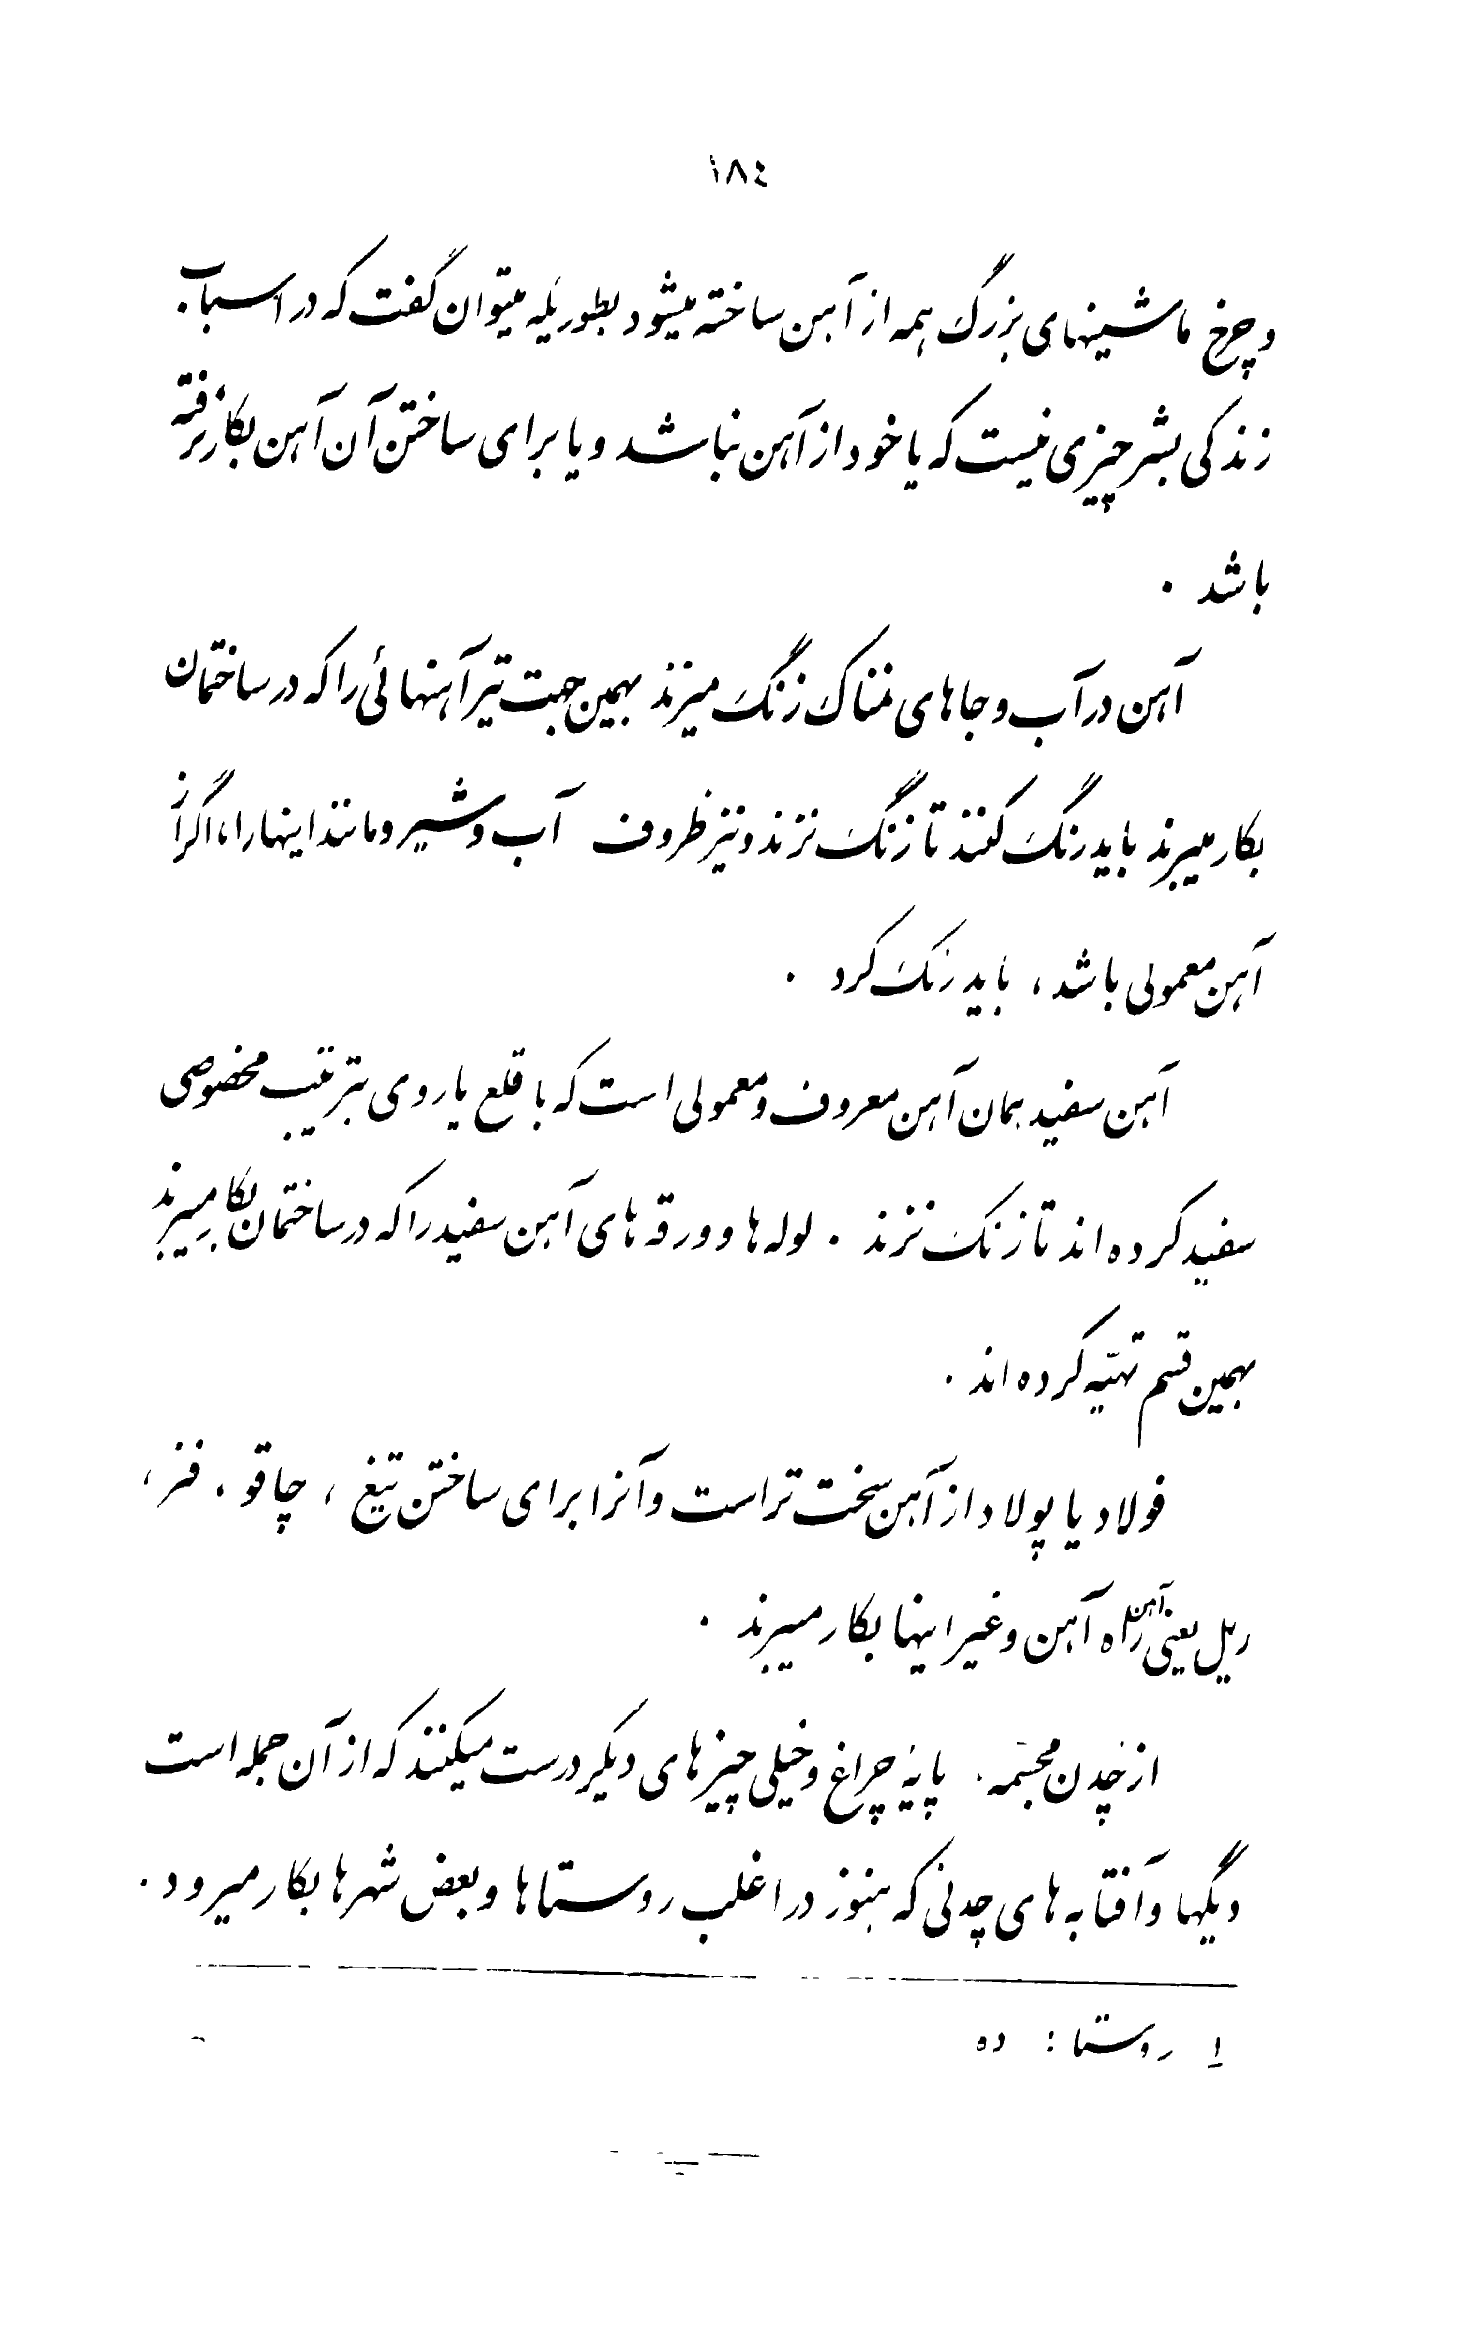 ١٨٤
و چرخ ماشینهای بزرگ همه از آهن ساخته میشود بطوریکه میتوان گفت که در اسباب
زندگی بشر چیزی نیست که یا خود از آهن نباشد و یا برای ساختن آن آهن بکار نرفته
باشد .
آهن در آب و جاهای نمناک زنگ میزند بهمین جهت تیرآهنهائی را که در ساختمان
بکار میبرند باید رنگ کنند تا زنگ نزند و نیز ظروف آب و شیر و مانند اینها را، اگر از
آهن معمولی باشد، باید رنگ کرد .
آهن سفید همان آهن معروف و معمولی است که با قلع یا روی بترتیب مخصوصی
سفید کرده اند تا زنگ نزند . لوله ها و ورقه های آهن سفید را که در ساختمان بکار میبرند
بهمین قسم تهیّه کرده اند .
فولاد یا پولاد از آهن سخت تر است و آنرا برای ساختن تیغ ، چاقو ، فنر ،
ریل یعنی آهن راه آهن و غیر اینها بکار میبرند .
از چدن مجسّمه ، پایهٔ چراغ و خیلی چیزهای دیگر درست میکنند که از آن جمله است
دیگها و آفتابه های چدنی که هنوز در اغلب روستاها و بعض شهرها بکار میرود .
١ روستا : ده